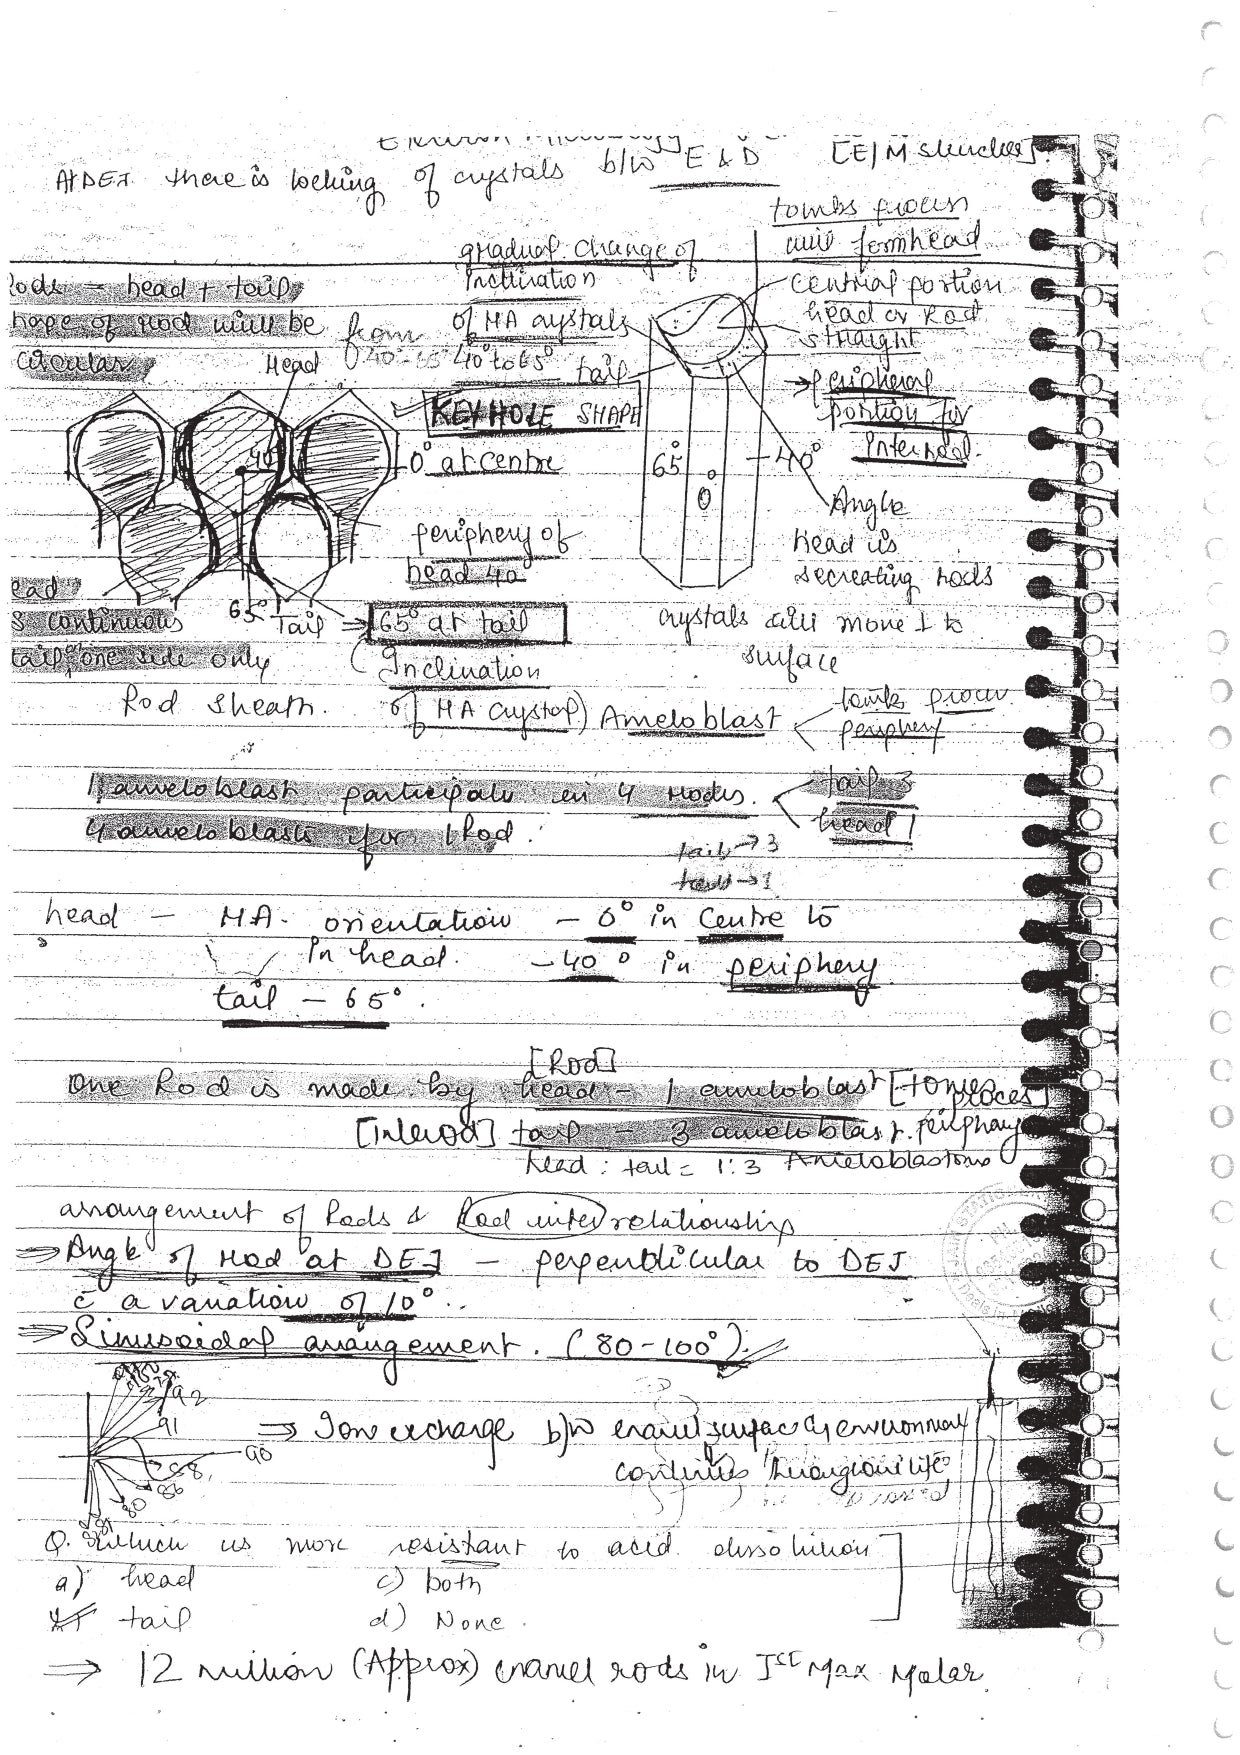 Electron Microscopy
[E/M structure]
At DEJ there is locking of crystals b/w E & D
tombs process
will form head
gradual change of
Inclination
of HA crystals
from 40°-65° 40° to 65°
Rods - head + tail
shape of rod will be
circular
Head
tail
central portion
head or Rod
straight
→ peripheral
portion for
Interrod.
KEYHOLE SHAPE
40°
0° at centre
65°
0°
-40°
Angle
periphery of
head 40
head is
secreating rods
head
is continuous
tail one side only
65°
Tail ⇒ 65° at tail
crystals will move ⊥ to
surface
Inclination
of HA crystal)
Rod Sheath.
Ameloblast
tomb process
periphery
1 ameloblast participate in 4 rods.
tail 3
head 1
4 ameloblasts for 1 Rod.
tail → 3
head - HA. orientation - 0° in Centre to
In head. - 40° in periphery
tail - 65°.
[Rod]
One Rod is made by head - 1 ameloblast [tomes
process]
[interod] tail - 3 ameloblast. periphary
head : tail = 1:3 Ameloblastoms
arrangement of Rods & Rod inter relationship
⇒ Angle of rod at DEJ - perpendicular to DEJ
c̄ a variation of 10°.
⇒ Sinusoidal arrangement. (80-100°)
92
91
90
88
86
80
⇒ Ion exchange b/w enamel surface & environment
continues throughout life
Q. Which is more resistant to acid dissolution
a) head c) both
tail d) None.
⇒ 12 million (Approx) enamel rods in Ist Max Molar.